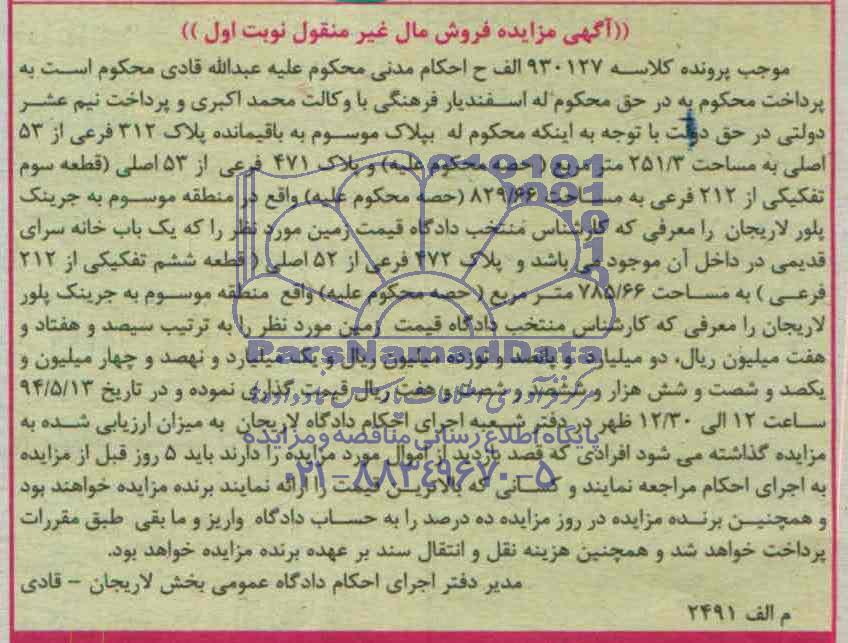 ((آگهی مزایده فروش مال غیر منقول نوبت اول ))
موجب پرونده کلاسه ۹۳۰۱۲۷ الف ح احکام مدنی محکوم علیه عبدالله قادی محکوم است به
پرداخت محکوم به در حق محکوم له اسفندیار فرهنگی با وکالت محمد اکبری و پرداخت نیم عشر
دولتی در حق دولت با توجه به اینکه محکوم له بپلاک موسوم به باقیمانده پلاک ۳۱۲ فرعی از ۵۳
اصلی به مساحت ۲۵۱/۳ متر مربع (حصه محکوم علیه) و پلاک ۴۷۱ فرعی از ۵۳ اصلی (قطعه سوم
تفکیکی از ۲۱۲ فرعی به مساحت ۸۲۹/۶۶ (حصه محکوم علیه) واقع در منطقه موسوم به جرینک
پلور لاریجان را معرفی که کارشناس منتخب دادگاه قیمت زمین مورد نظر را که یک باب خانه سرای
قدیمی در داخل آن موجود می باشد و پلاک ۴۷۲ فرعی از ۵۲ اصلی (قطعه ششم تفکیکی از ۲۱۲
فرعی ) به مساحت ۷۸۵/۶۶ متر مربع ( حصه محکوم علیه) واقع منطقه موسوم به جرینک پلور
لاریجان را معرفی که کارشناس منتخب دادگاه قیمت زمین مورد نظر را به ترتیب سیصد و هفتاد و
هفت میلیون ریال، دو میلیارد و پانصد و نوزده میلیون ریال و یک میلیارد و نهصد و چهار میلیون و
یکصد و شصت و شش هزار و ششصد و شصت و هفت ریال قیمت گذاری نموده و در تاریخ ۹۴/۵/۱۳
ساعت ۱۲ الی ۱۲/۳۰ ظهر در دفتر شعبه اجرای احکام دادگاه لاریجان به میزان ارزیابی شده به
مزایده گذاشته می شود افرادی که قصد بازدید از اموال مورد مزایده را دارند باید ۵ روز قبل از مزایده
به اجرای احکام مراجعه نمایند و کسانی که بالاترین قیمت را ارائه نمایند برنده مزایده خواهند بود
و همچنین برنده مزایده در روز مزایده ده درصد را به حساب دادگاه واریز و ما بقی طبق مقررات
پرداخت خواهد شد و همچنین هزینه نقل و انتقال سند بر عهده برنده مزایده خواهد بود.
مدیر دفتر اجرای احکام دادگاه عمومی بخش لاریجان - قادی
م الف ۲۴۹۱
ParsNamadData
پایگاه اطلاع رسانی مناقصه و مزایده
۰۲۱-۸۸۳۴۹۶۷۰-۵